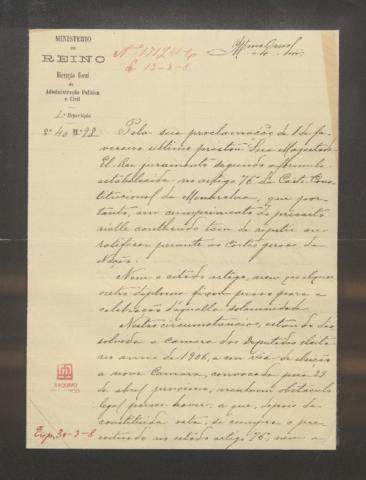 MINISTERIO
DO
REINO
Direcção Geral
de
Administração Politica
e Civil
1.ª Repartição
L.º 40 N.º 92
E. 12-3-8
Pela sua proclamação de 1 de fe-
vereiro ultimo prestou Sua Magestade
El-Rei juramento segundo a formula
estabelecida no artigo 76º da Carta Cons-
titucional da Monarchia, que por-
tanto, em cumprimento do preceito
nelle contheudo tem de repetir ou
ratificar perante as Cortes geraes da
Nação.
Nem o citado artigo, nem qualquer
outro diploma fixam prazo para a
celebração d'aquella solemnidade.
Nestas circumstancias, estando dis-
solvida a Camara dos Deputados eleita
no anno de 1906, e em via de eleição
a nova Camara, convocada para 29
de abril proximo, nenhum obstaculo
legal parece haver, a que, depois de
constituida esta, se cumpra o pre-
ceituado no citado artigo 76º, nem a
Exp. 30-3-8